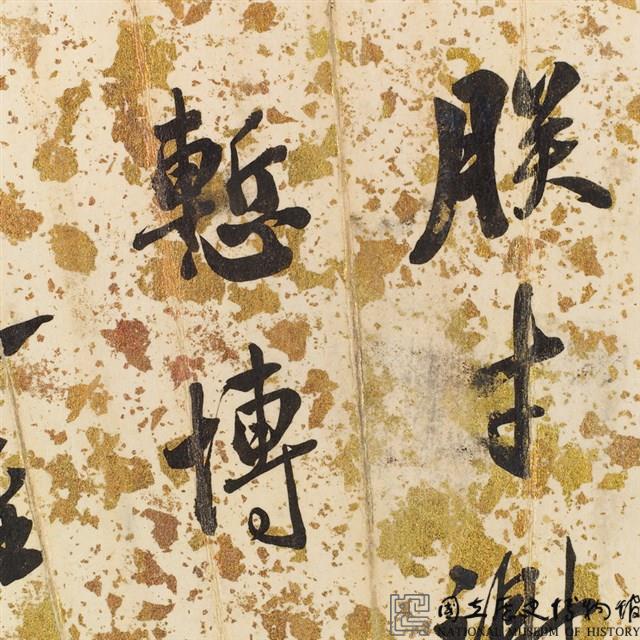 朕才
慙博
國立歷史博物館
NATIONAL MUSEUM OF HISTORY